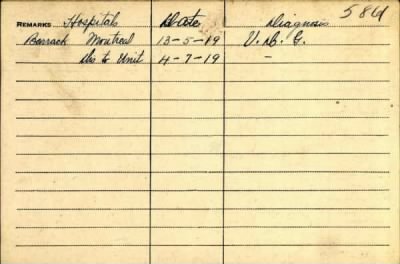 586
REMARKS Hospitals Date Diagnosis
Barrack Montreal 13-5-19 V. D. G.
Dis to Unit 4-7-19 -